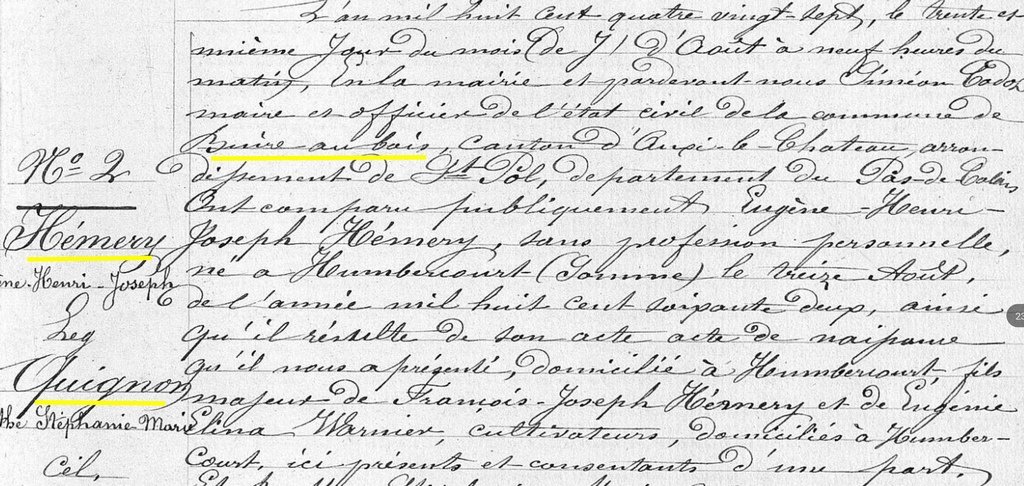 L'an mil huit cent quatre vingt-sept, le trente et
unième jour du mois de d'Août à neuf heures du
matin, En la mairie et pardevant-nous Siméon
maire et officier de l'état civil de la commune de
Buire au bois, canton d'Auxi-le-Chateau, arron-
dissement de St Pol, departement du Pas-de-Calais
Ont comparu publiquement Eugène-Henri-
Joseph Hémery, sans profession personnelle,
né à Humbercourt (Somme) le treize Août,
de l'année mil huit cent soixante deux, ainsi
qu'il résulte de son acte acte de naissance
qu'il nous a présenté, domicilié à Humbercourt, fils
majeur de François-Joseph Hémery et de Eugénie
Elina Warnier, cultivateurs, domiciliés à Humber-
court, ici présents et consentants d'une part.
Nº 2
Hémery
ène-Henri-Joseph
Quignon
Stéphanie Marie
23